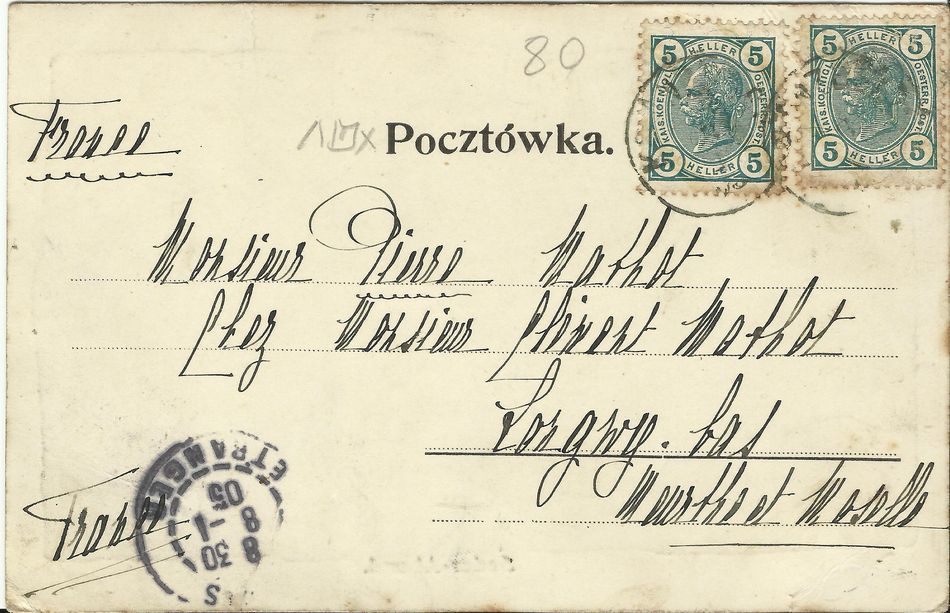 80
France
Pocztówka.
5 HELLER 5
KAIS. KOENIGL. OESTERR. POST.
5 HELLER 5
5 HELLER 5
KAIS. KOENIGL. OESTERR. POST.
5 HELLER 5
Monsieur Pierre Mathot
Chez Monsieur Clément Mathot
Longwy-bas
Meurthe et Moselle
France
ETRANGER
8 30
8 -1
05
S